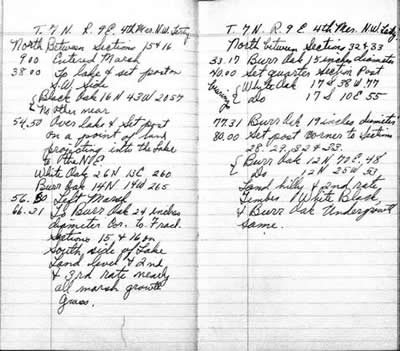 T. 7 N. R. 9 E. 4th Mer. N.W. Terty
North Between Sections 15 & 16
9.00 Entered Marsh
38.00 To lake & set post on
S.W. Side
Black Oak 16 N 43 W 20 57
& No other near
54.50 Over lake & set post
on a point of land
projecting into the lake
to the N.E.
White Oak 26 N 13 E 260
Burr Oak 14 N 14 W 265
56.80 Left Marsh
66.21 To Burr Oak 24 inches
diameter Cor. to Fracl.
Sections 15, & 16 on
South side of Lake
Land level & 2nd
& 3rd rate nearly
all marsh growth
Grass.
T. 7 N. R. 9 E. 4th Mer. N.W. Terty
North between Sections 32 & 33
33.17 Burr Oak 15 inches diameter
40.00 Set quarter section Post
White Oak 17 S 38 W 77
Do 17 S 10 E 55
77.31 Burr Oak 19 inches diameter
80.00 Set post corner to Sections
28. 29. 32 & 33.
Burr Oak 12 N 70 E, 48
Do 12 N 25 W 53
Land hilly & 2nd rate
Timber White Black,
& Burr Oak Undergrowth
Same.